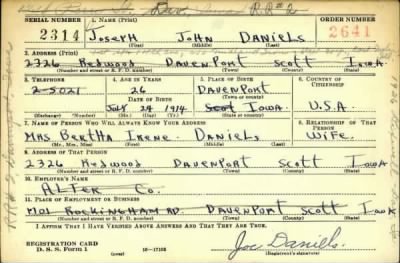 R.R.#2
SERIAL NUMBER 1. NAME (Print) ORDER NUMBER
2314 JOSEPH JOHN DANIELS 2641
(First) (Middle) (Last)
2. ADDRESS (Print)
2326 REDWOOD DAVENPORT SCOTT IOWA
(Number and street or R. F. D. number) (Town) (County) (State)
3. TELEPHONE 4. AGE IN YEARS 5. PLACE OF BIRTH 6. COUNTRY OF CITIZENSHIP
2-5021 26 DAVENPORT
DATE OF BIRTH (Town or county)
JULY 24 1914 Scot IOWA U.S.A.
(Exchange) (Number) (Mo.) (Day) (Yr.) (State or country)
7. NAME OF PERSON WHO WILL ALWAYS KNOW YOUR ADDRESS 8. RELATIONSHIP OF THAT PERSON
MRS BERTHA IRENE DANIELS WIFE
(Mr., Mrs., Miss) (First) (Middle) (Last)
9. ADDRESS OF THAT PERSON
2326 REDWOOD DAVENPORT SCOTT IOWA
(Number and street or R. F. D. number) (Town) (County) (State)
10. EMPLOYER'S NAME
ALTER CO.
11. PLACE OF EMPLOYMENT OR BUSINESS
ROCKINGHAM RD DAVENPORT SCOTT IOWA
(Number and street or R. F. D. number) (Town) (County) (State)
I AFFIRM THAT I HAVE VERIFIED ABOVE ANSWERS AND THAT THEY ARE TRUE.
REGISTRATION CARD
D. S. S. Form 1 16-17105 Joe Daniels
(over) (Registrant's signature)